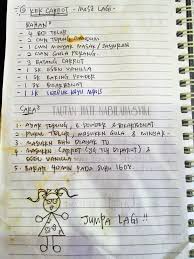 KEK CARROT - MOIST LAGI -
BAHAN²
- 4 BIJI TELUR
- 2 CUP TEPUNG GANDUM
- 1 CUP MINYAK MASAK / SAYURAN
- 1 CUP GULA PERANG
- 3 BATANG CARROT
- 1 SK ESEN VANILLA
- 1 SK BAKING POWDER
- 1 SK BICARBONAT
- 1 SK SERBUK KAYU MANIS
CARA²
1. AYAK TEPUNG, B. POWDER & BICARBONAT
2. PUKUL TELUR, MASUKKAN GULA & MINYAK
3. MASUKKAN BHN DIAYAK TD
4. MASUKKAN CARROT (YG TLH DIPARUT) &
ESEN VANILLA
5. BAKAR 40MIN PADA SUHU 160°C.
JUMPA LAGI!!